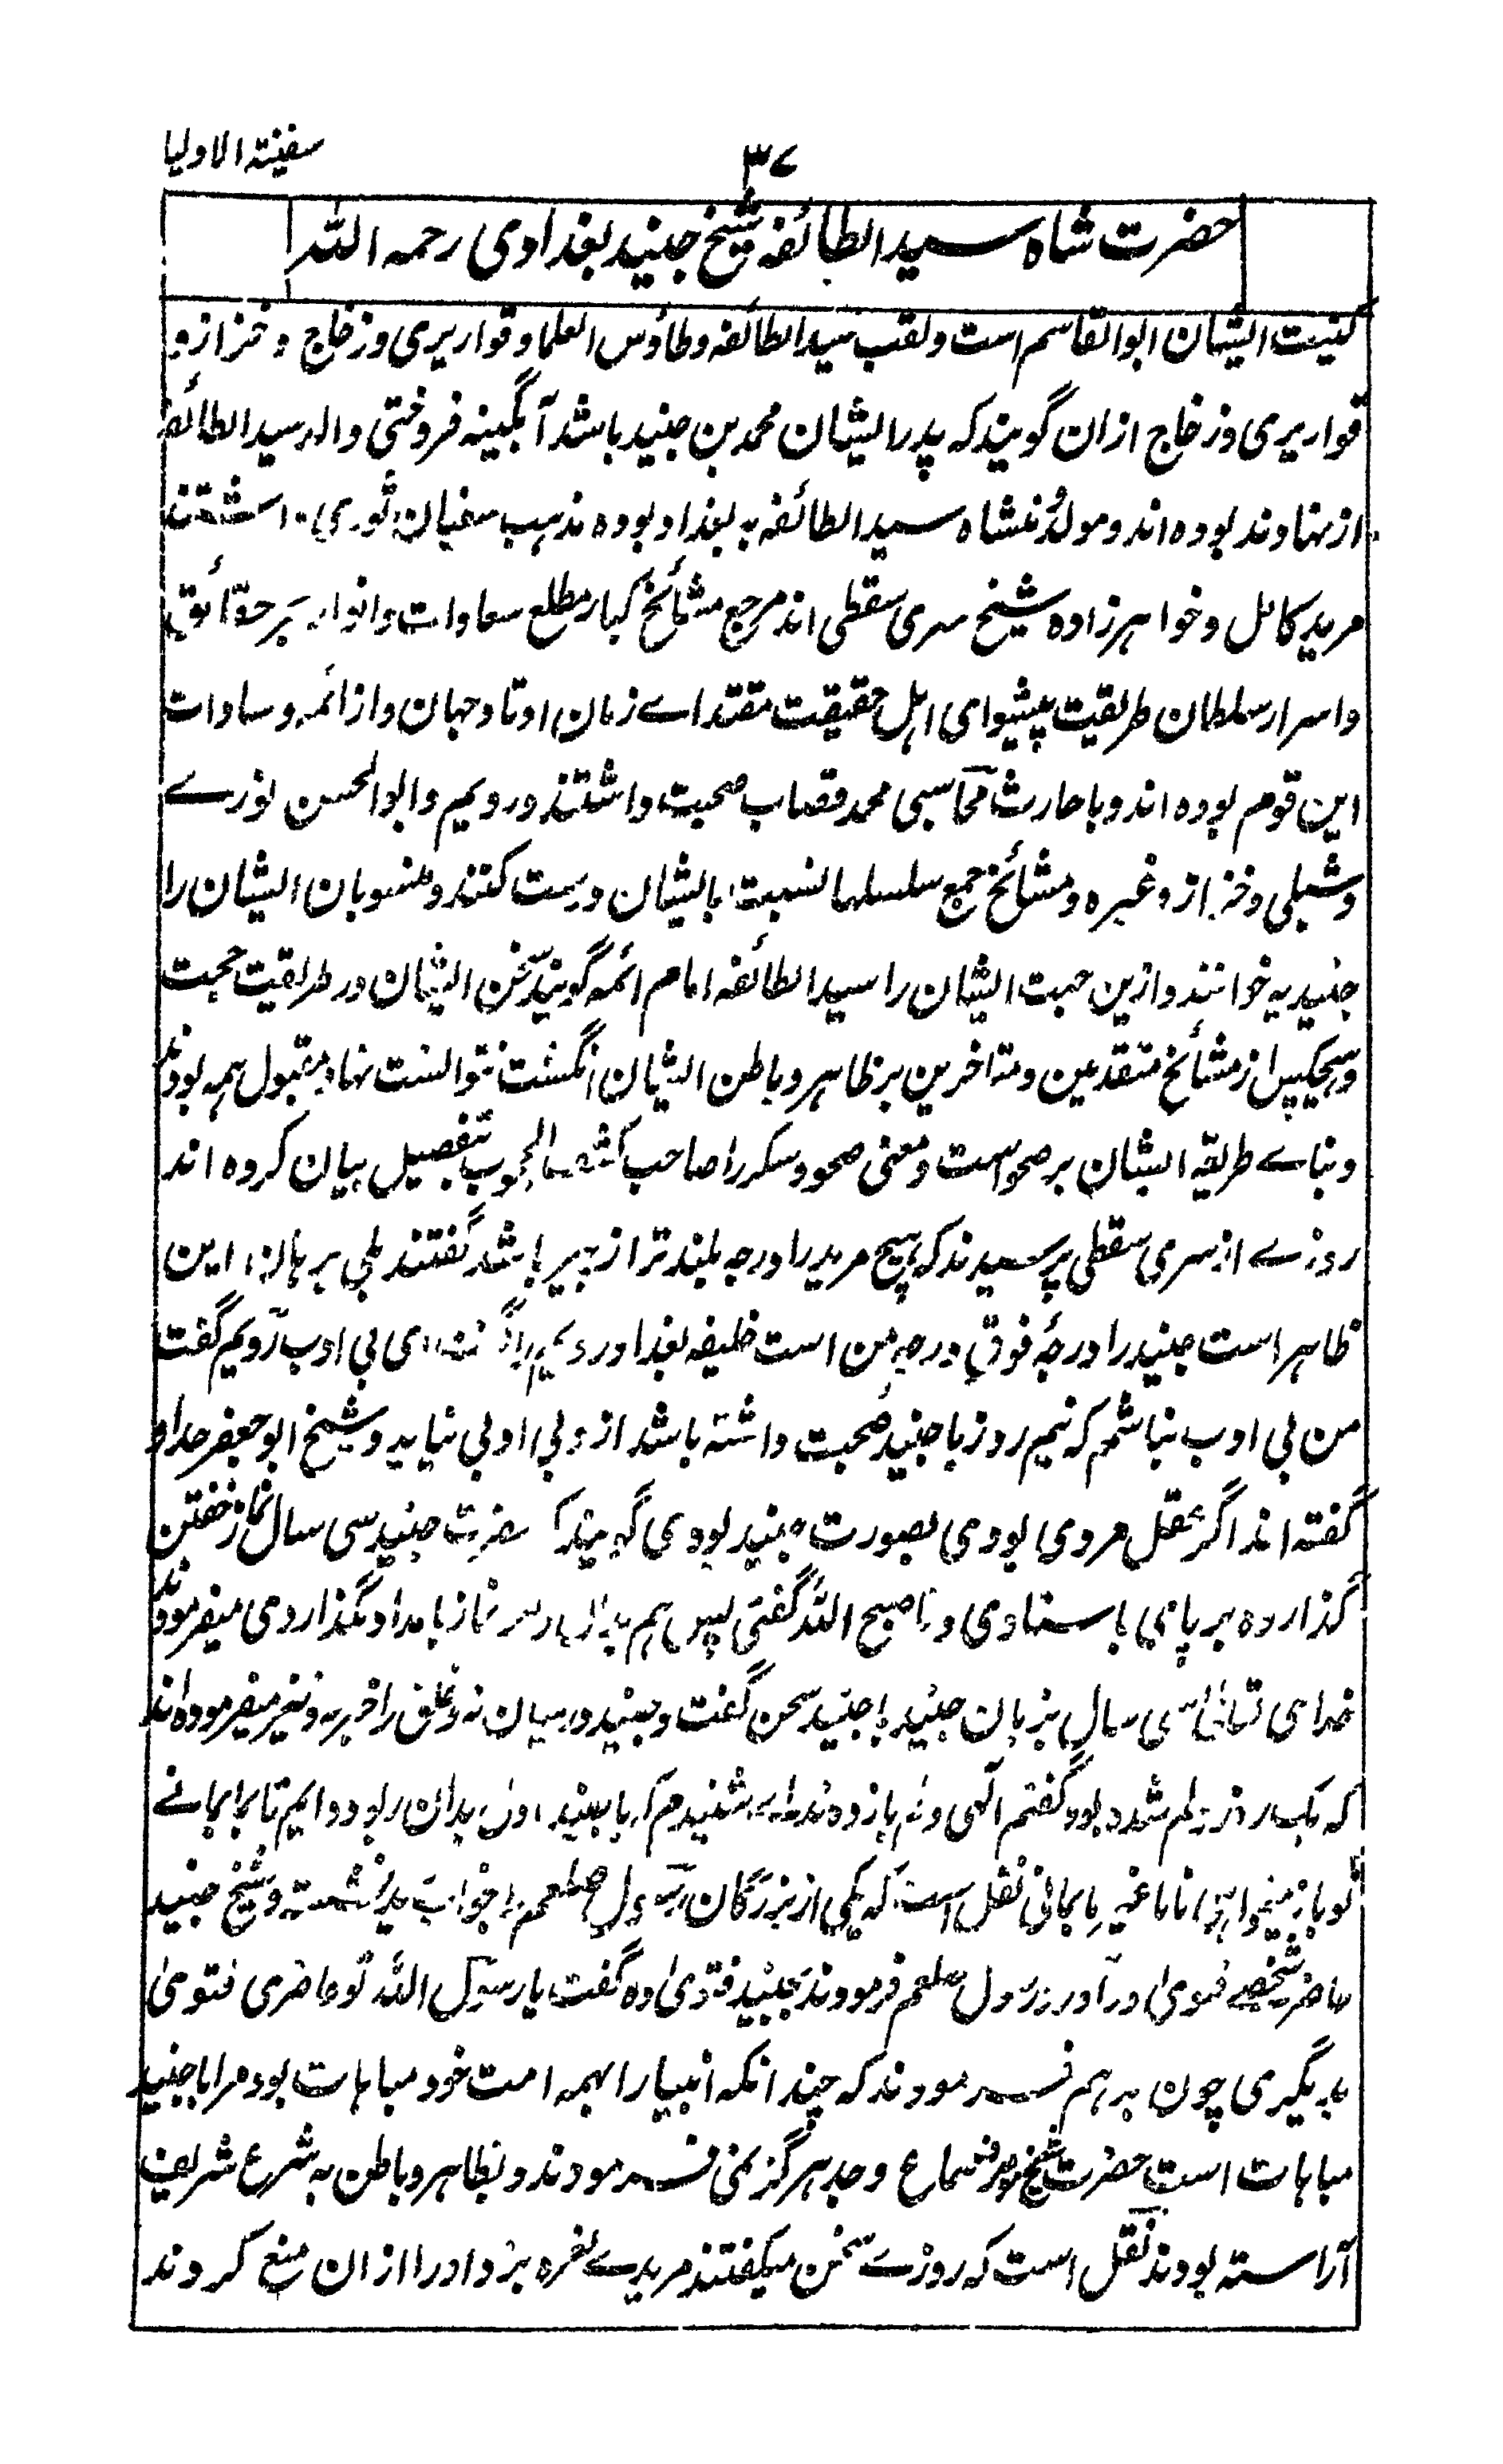 سفینة الاولیا
۳۷
حضرت شاه سید الطائفه شیخ جنید بغدادی رحمه الله
کنیت ایشان ابو القاسم است ولقب سید الطائفه وطاؤس العلما وقواریری وزجاج وخزازو
قواریری وزجاج ازان گویند که پدر ایشان محمد بن جنید باشد آبگینه فروختی واله سید الطائفه
از نهاوند بوده اند ومولد منشاه سید الطائفه به بغداد بوده مذهب سفیان ثوری داشتند
مرید کامل وخواهرزاده شیخ سری سقطی اند مرجع مشائخ کبار مطلع سعادات وانوار پر حقائق
واسرار سلطان طریقیت پیشوای اهل حقیقت مقتداے زمان اوتاد جهان واز ائمه وسادات
این قوم بوده اند وبا حارث محاسبی محمد قصاب صحبت داشتند ورویم وابو الحسن نورے
وشبلی وخزاز وغیره ومشائخ جمیع سلسلها نسبت بایشان درست کنند ومنسوبان ایشان را
جنیدیه خوانند وازین جهت ایشان را سید الطائفه امام ائمه گویند سخن ایشان در طریقیت حجت
وهیچکس از مشائخ متقدمین ومتاخرین بر ظاهر وباطن ایشان انگشت نتوانست نهاد مقبول همه بودند
وبناے طریقه ایشان بر صحو است ومعنی صحو وسکر را صاحب کشف المحجوب بتفصیل بیان کرده اند
روزے از سری سقطی پرسیدند که هیچ مرید را درجه بلند تر از پیر باشد گفتند بلی برهان این
ظاهر است جنید را درجهٔ فوق درجه من است خلیفه بغداد رویم را گفت ای بی ادب رویم گفت
من بی ادب نباشم که نیم روز با جنید صحبت داشته باشد از وبی ادبی نیاید وشیخ ابو جعفر حداد
گفته اند اگر عقل مردی بودی بصورت جنید بودی گویند که حضرت جنید سی سال نماز خفتن
گذارده بر پای باستادی وتا صبح الله گفتی پس هم نماز بامداد بگذاردی میفرمودند
خدای تعالی سی سال بزبان جنید با جنید سخن گفت وجنید درمیان نه وخلق را خبر نه ونیز میفرموده اند
که یک روز دلم شده بود گفتم الهی دلم باز ده نداے شنیدم که یا جنید دل بدان ربوده ایم تا بما بمانے
تو باز میخواهی تا با غیر ما بمانی نقل است که یکی از بزرگان رسول صلعم را خواب دید نشسته وشیخ جنید
حاضر شخصے فتوی در آورد رسول صلعم فرمودند بجنید فتوی ده گفت یا رسول الله تو حاضری فتوی
بدیگری چون بدهم فرمودند که چندانکه انبیا را بهمه امت خود مباهات بود مرا با جنید
مباهات است حضرت شیخ سماع وجد هرگز نمی فرمودند وبظاهر وباطن به شرع شریف
آراسته بودند نقل است که روزے سخن میگفتند مریدے نعره بزد او را ازان منع کردند